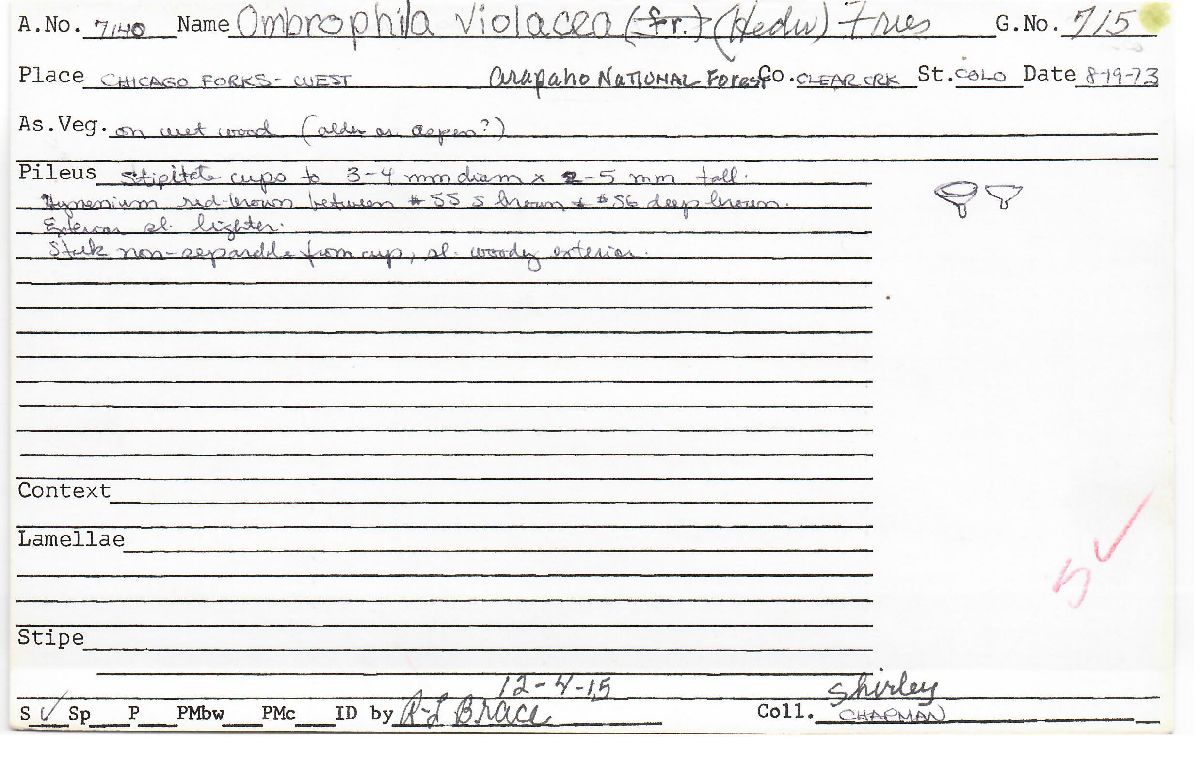 A.No. 7140 Name Ombrophila Violacea (fr.) (Hedw) Fries G.No. 715
Place CHICAGO FORKS - WEST Arapaho NATIONAL Forest Co. CLEAR CRK St. COLO Date 8-19-73
As.Veg. on wet wood (alder or aspen?)
Pileus Stipitate cups to 3-4 mm diam x 2-5 mm tall.
Hymenium red-brown between #55 s brown & #56 deep brown.
Exterior sl. lighter.
Stalk non-separable from cup, sl. woody exterior.
Context
Lamellae
Stipe
12-4-15 Shirley
S ✓ Sp P PMbw PMc ID by R-L Brace Coll. CHAPMAN